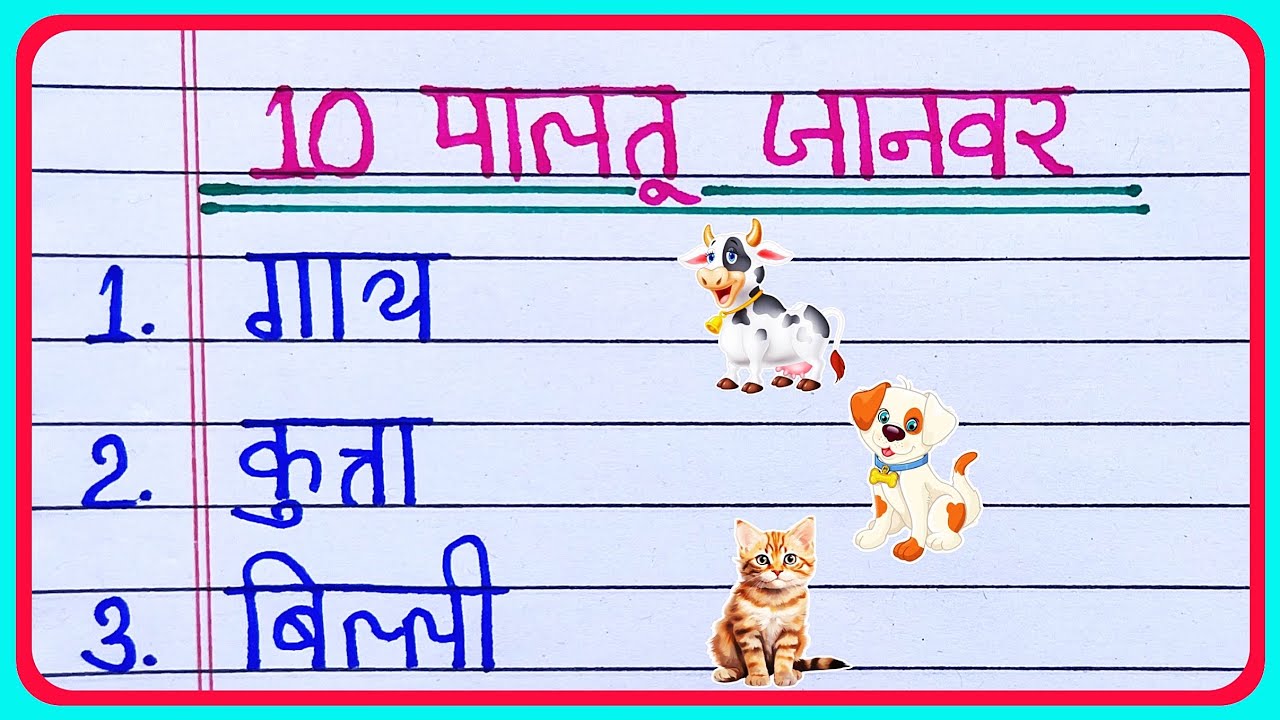 10 पालतू जानवर
1. गाय
2. कुत्ता
3. बिल्ली